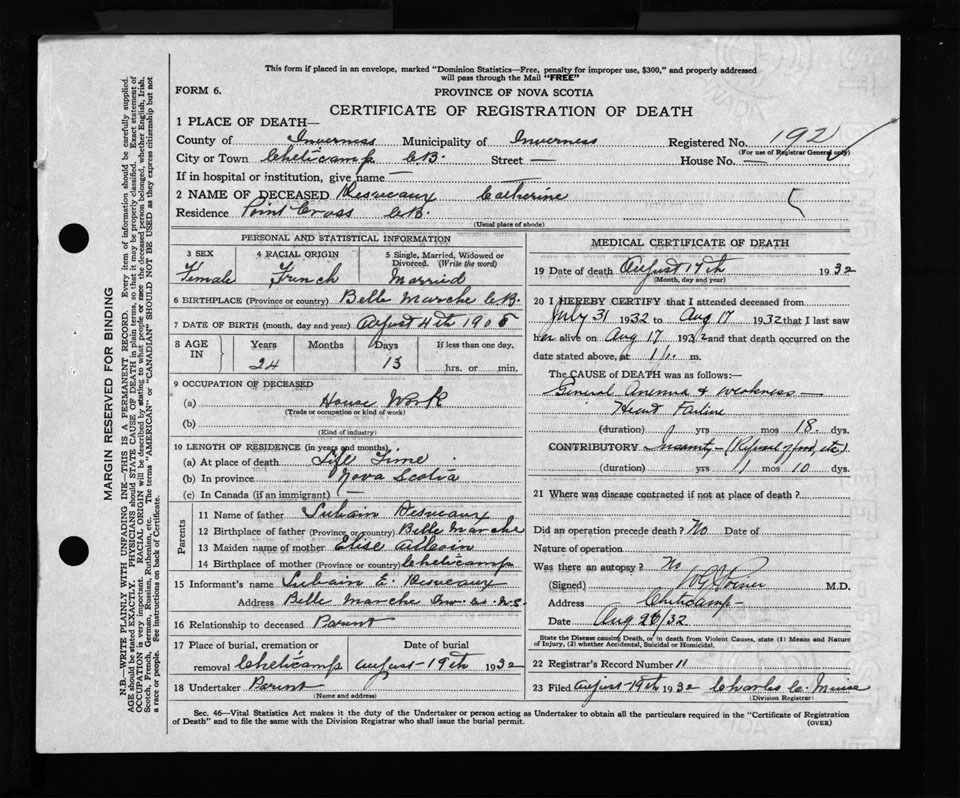 This form if placed in an envelope, marked "Dominion Statistics—Free, penalty for improper use, $300," and properly addressed
will pass through the Mail "FREE"
FORM 6.
PROVINCE OF NOVA SCOTIA
CERTIFICATE OF REGISTRATION OF DEATH
1 PLACE OF DEATH—
County of Inverness Municipality of Inverness Registered No. 192
(For use of Registrar General only)
City or Town Cheticamp CB. Street — House No. —
If in hospital or institution, give name —
2 NAME OF DECEASED Desveaux Catherine
Residence Point Cross CB.
(Usual place of abode)
PERSONAL AND STATISTICAL INFORMATION
3 SEX 4 RACIAL ORIGIN 5 Single, Married, Widowed or Divorced. (Write the word)
Female French Married
6 BIRTHPLACE (Province or country) Belle Marche CB.
7 DATE OF BIRTH (month, day and year) August 4th
8 AGE IN Years Months Days If less than one day,
24 13 hrs. or min.
9 OCCUPATION OF DECEASED
(a) House Work
(Trade or occupation or kind of work)
(b)
(Kind of industry)
10 LENGTH OF RESIDENCE (in years and months)
(a) At place of death Life Time
(b) In province Nova Scotia
(c) In Canada (if an immigrant) —
Parents
11 Name of father Lubain Desveaux
12 Birthplace of father (Province or country) Belle Marche
13 Maiden name of mother Elise
14 Birthplace of mother (Province or country) Cheticamp
15 Informant's name Lubain E. Desveaux
Address Belle Marche Inv. Co. N.S.
16 Relationship to deceased Parent
17 Place of burial, cremation or removal Date of burial
Cheticamp August 19th 1932
18 Undertaker Parent
(Name and address)
MEDICAL CERTIFICATE OF DEATH
19 Date of death August 17th 1932
(Month, day and year)
20 I HEREBY CERTIFY that I attended deceased from
July 31 1932 to Aug 17 1932 that I last saw
her alive on Aug 17 1932 and that death occurred on the
date stated above, at m.
The CAUSE of DEATH was as follows:—
General Anemia & weakness —
Heart Failure
(duration) yrs mos 18 dys.
CONTRIBUTORY Insanity — (Refusal of food, etc.)
(duration) yrs 1 mos 10 dys.
21 Where was disease contracted if not at place of death?
Did an operation precede death? No Date of
Nature of operation
Was there an autopsy? No
(Signed) M.D.
Address Cheticamp
Date Aug /32
State the Disease causing Death, or in death from Violent Causes, state (1) Means and Nature
of Injury, (2) whether Accidental, Suicidal or Homicidal.
22 Registrar's Record Number 11
23 Filed August 19th 1932 Charles
(Division Registrar)
Sec. 46—Vital Statistics Act makes it duty of the Undertaker or person acting as Undertaker to obtain all the particulars required in the "Certificate of Registration
of Death" and to file the same with the Division Registrar who shall issue the burial permit. (OVER)
MARGIN RESERVED FOR BINDING
N.B.—WRITE PLAINLY WITH UNFADING INK—THIS IS A PERMANENT RECORD. Every item of information should be carefully supplied.
AGE should be stated EXACTLY. PHYSICIANS should STATE CAUSE OF DEATH in plain terms, so that it may be properly classified. Exact statement of
OCCUPATION is very important. RACIAL ORIGIN will be described by stating to what people or race the deceased person belonged, whether English, Irish,
Scotch, French, German, Russian, Ruthenian, etc. The terms "AMERICAN" or "CANADIAN" SHOULD NOT BE USED as they express citizenship but not
a race or people. See instructions on back of Certificate.